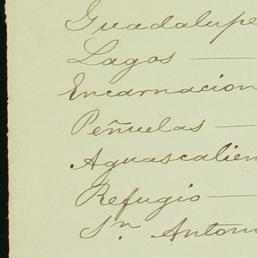 Guadalupe
Lagos —
Encarnacion
Peñuelas —
Aguascalien
Refugio —
Sn. Anton